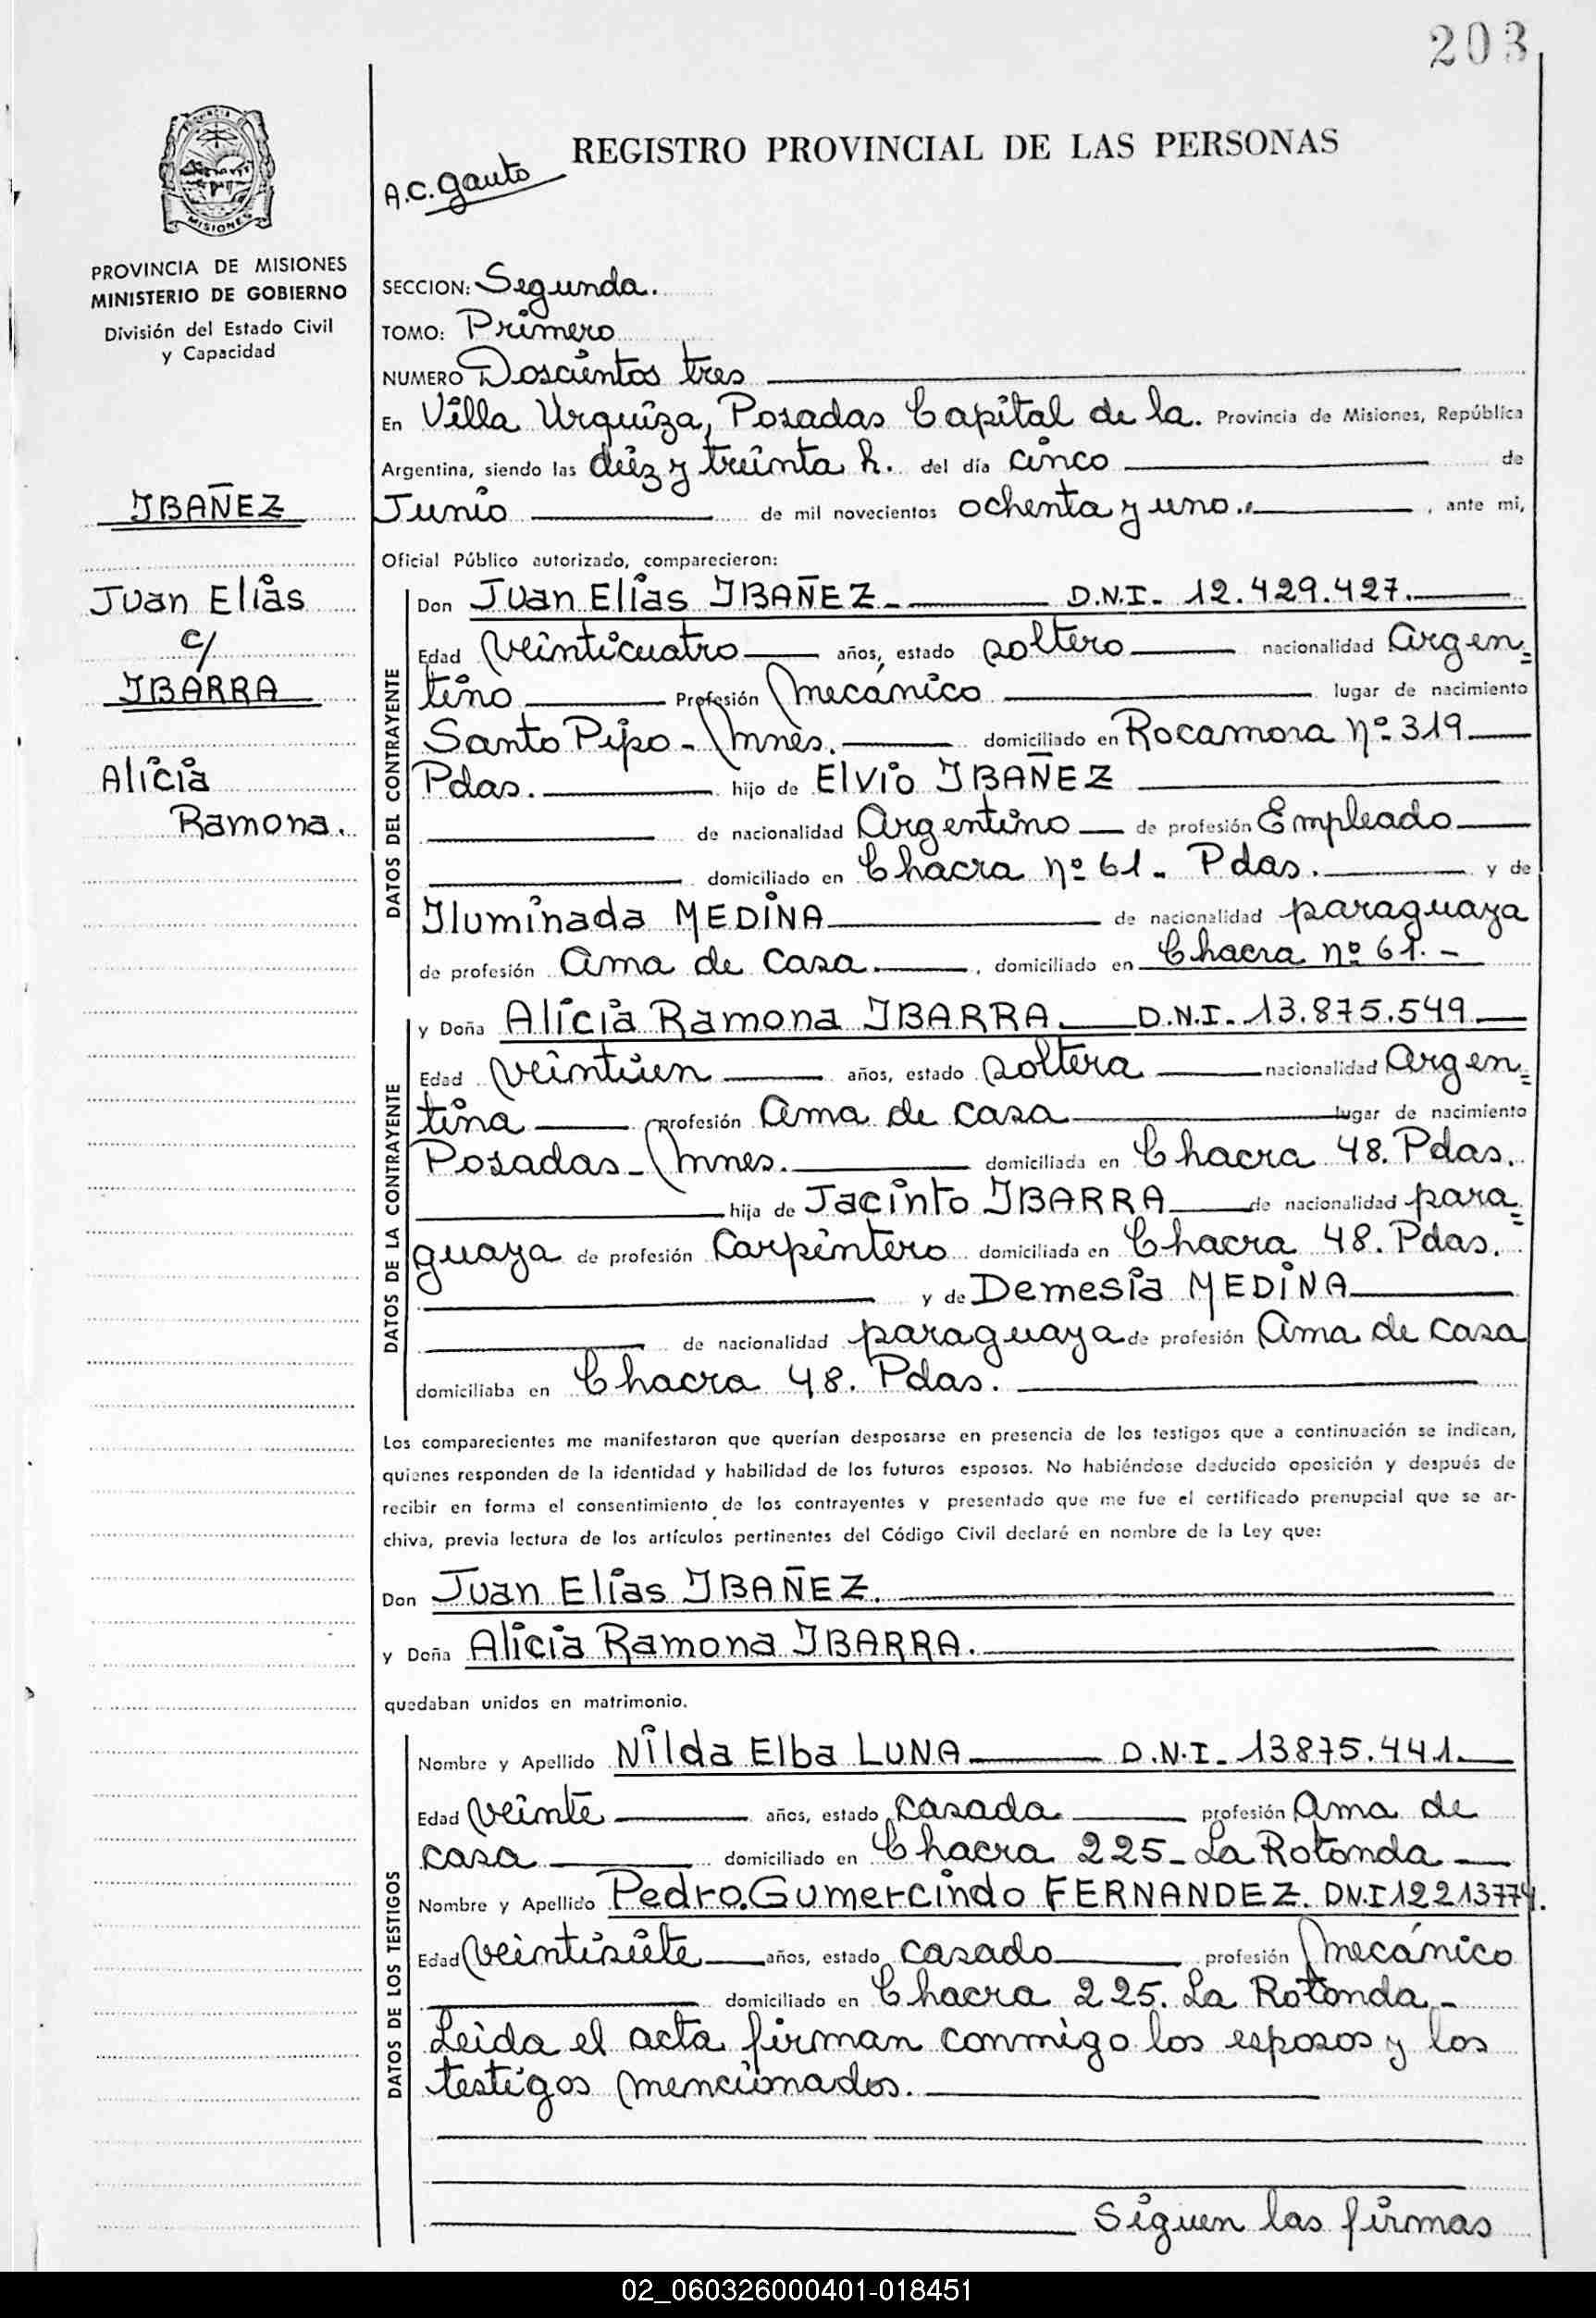 203
REGISTRO PROVINCIAL DE LAS PERSONAS
A.C. Gauto
PROVINCIA DE MISIONES
MINISTERIO DE GOBIERNO
División del Estado Civil
y Capacidad
IBAÑEZ
Juan Elias
c/
IBARRA
Alicia
Ramona.
SECCION: Segunda.
TOMO: Primero
NUMERO Doscientos tres
En Villa Urquiza, Posadas Capital de la. Provincia de Misiones, República
Argentina, siendo las diez y treinta h. del día cinco de
Junio de mil novecientos ochenta y uno.. , ante mi,
Oficial Público autorizado, comparecieron:
DATOS DEL CONTRAYENTE
Don Juan Elias IBAÑEZ.- D.N.I- 12.429.427.
Edad veinticuatro años, estado soltero nacionalidad Argen=
tino Profesión mecánico lugar de nacimiento
Santo Pipo - Mnes. domiciliado en Rocamora Nº 319
Pdas. hijo de Elvio IBAÑEZ
de nacionalidad Argentino de profesión Empleado
domiciliado en Chacra nº 61. Pdas. y de
Iluminada MEDINA de nacionalidad paraguaya
de profesión Ama de casa. , domiciliado en Chacra nº 61. -
DATOS DE LA CONTRAYENTE
y Doña Alicia Ramona IBARRA. D.N.I- 13.875.549
Edad veintiun años, estado soltera nacionalidad Argen=
tina profesión Ama de casa lugar de nacimiento
Posadas - Mnes. domiciliada en Chacra 48. Pdas.
hija de Jacinto IBARRA de nacionalidad para=
guaya de profesión Carpintero domiciliada en Chacra 48. Pdas.
y de Demesia MEDINA
de nacionalidad paraguaya de profesión Ama de casa
domiciliaba en Chacra 48. Pdas.
Los comparecientes me manifestaron que querían desposarse en presencia de los testigos que a continuación se indican,
quienes responden de la identidad y habilidad de los futuros esposos. No habiéndose deducido oposición y después de
recibir en forma el consentimiento de los contrayentes y presentado que me fue el certificado prenupcial que se ar-
chiva, previa lectura de los artículos pertinentes del Código Civil declaré en nombre de la Ley que:
Don Juan Elias IBAÑEZ.
y Doña Alicia Ramona IBARRA.
quedaban unidos en matrimonio.
DATOS DE LOS TESTIGOS
Nombre y Apellido Nilda Elba LUNA D.N.I- 13875.441.
Edad veinte años, estado casada profesión Ama de
casa domiciliado en Chacra 225- La Rotonda
Nombre y Apellido Pedro Gumercindo FERNANDEZ. DN.I 12213774.
Edad veintisiete años, estado casado profesión mecánico
domiciliado en Chacra 225. La Rotonda -
Leida el acta firman conmigo los esposos y los
testigos mencionados.
Siguen las firmas
02_060326000401-018451